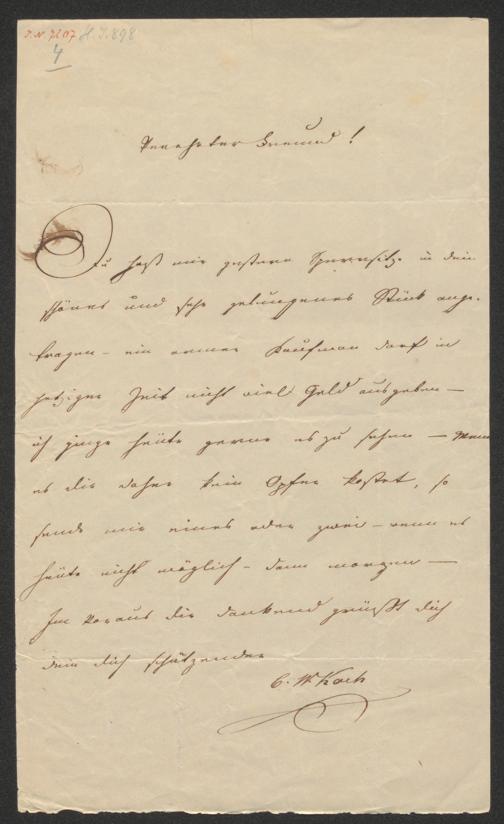 J. N. 7207 H. I. 898
4
Verehrter Freund!
Du hast mir gestern Sperrsitze in dein
schönes und sehr gelungenes Stück ange-
tragen – ein armer Kaufman darf in
jetziger Zeit nicht viel Geld ausgeben –
ich ginge heute gerne es zu sehen – Wenn
es dir daher kein Opfer kostet, so
sende mir eines oder zwei – wenn es
heute nicht möglich – dann morgen –
Im Voraus dir dankend grüßt dich
dein dich schätzender
C. W. Koch